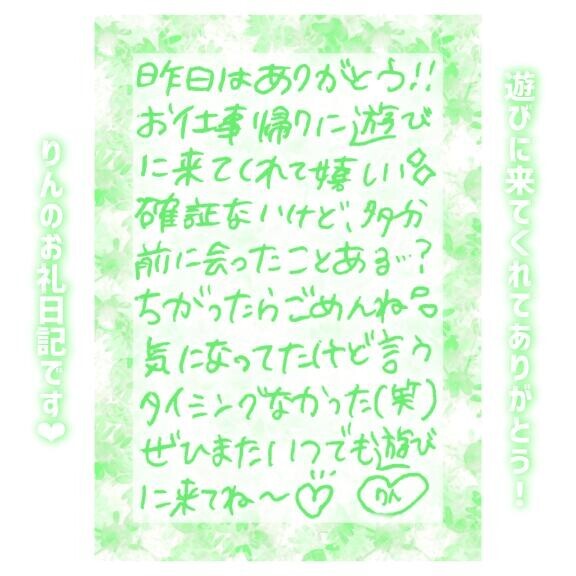 遊びに来てくれてありがとう！
昨日はありがとう!!
お仕事帰りに遊び
に来てくれて嬉しい
確証ないけど、多分
前に会ったことある…?
ちがったらごめんね
気になってたけど言う
タイミングなかった(笑)
ぜひまたいつでも遊び
に来てね〜♡
りん
りんのお礼日記です❤